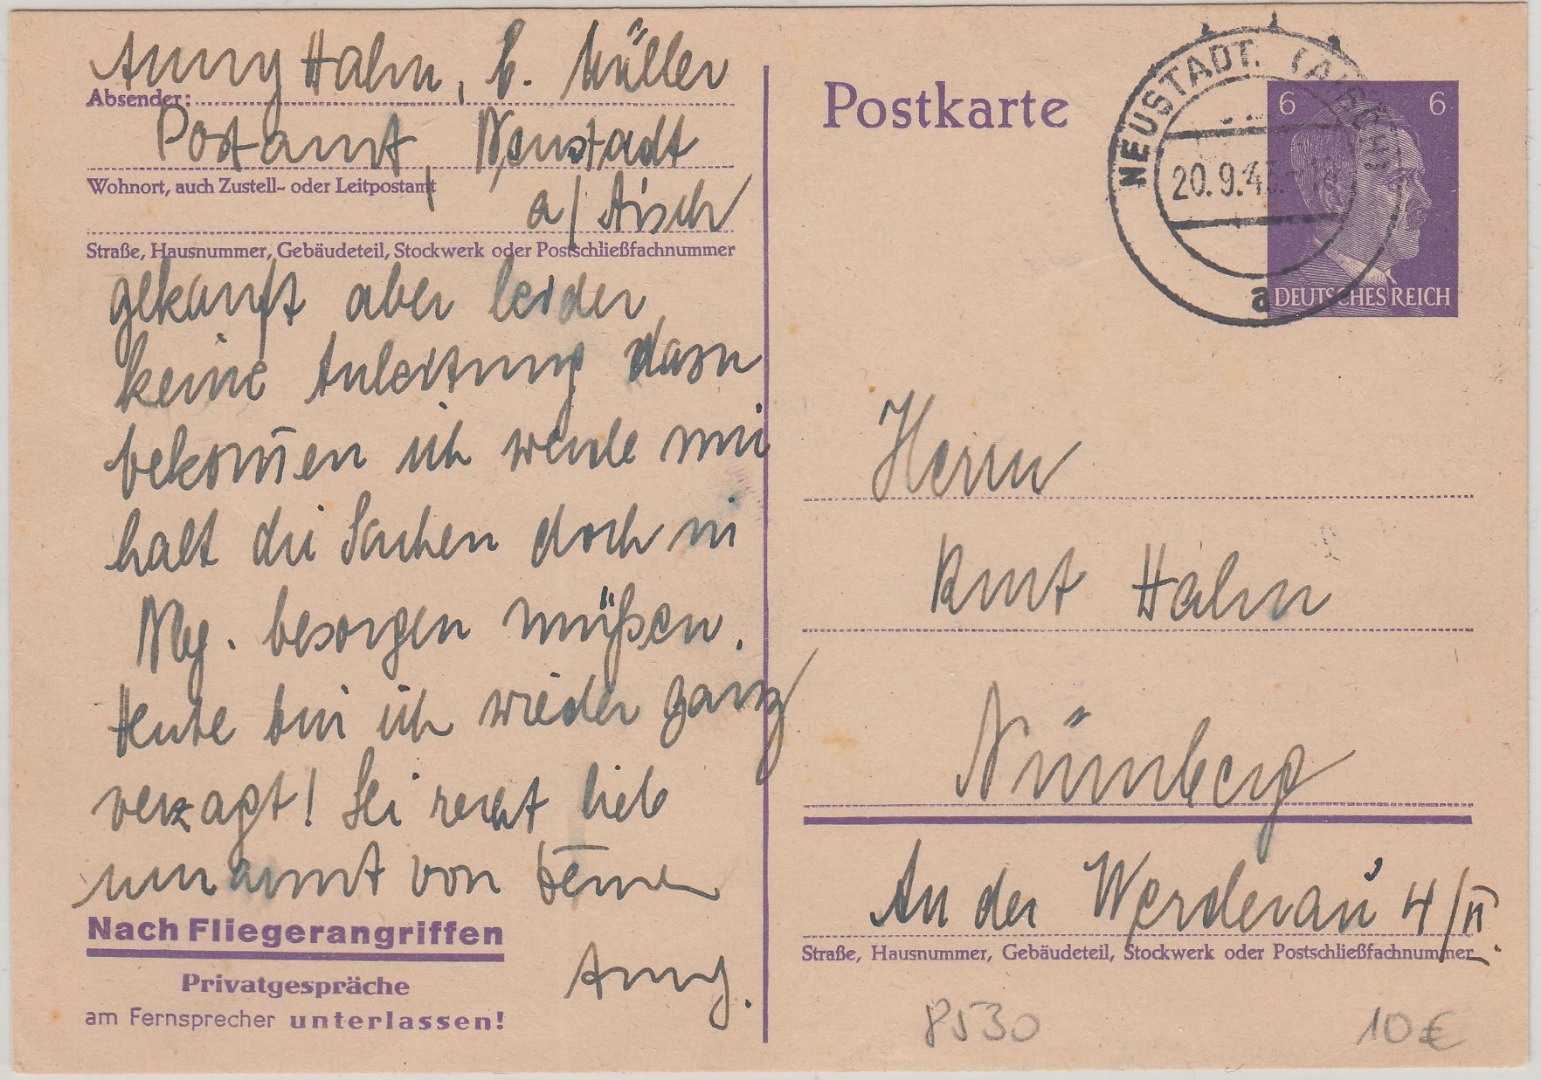 Anny Hahn, b. Müller
Absender:
Postamt, Neustadt
Wohnort, auch Zustell- oder Leitpostamt
a/ Aisch
Straße, Hausnummer, Gebäudeteil, Stockwerk oder Postschließfachnummer
gekauft aber leider
keine Anleitung dazu
bekom̄en ich werde mir
halt die Sachen doch in
Nbg. besorgen müßen.
Heute bin ich wieder ganz
verzagt! Sei recht lieb
umarmt von Deiner
Anny.
Nach Fliegerangriffen
Privatgespräche
am Fernsprecher unterlassen!
Postkarte
NEUSTADT (AISCH)
20.9.43
a
6 6
DEUTSCHES REICH
Herrn
Kurt Hahn
Nürnberg
An der Werderau 4/II.
Straße, Hausnummer, Gebäudeteil, Stockwerk oder Postschließfachnummer
8530
10€